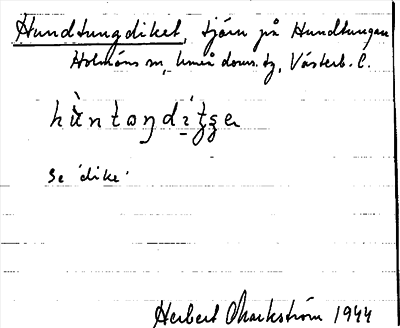 Hundtungdiket, tjärn på Hundtungan
Holmöns sn, Umeå doms. tg, Västerb. l.
Se 'dike'
Herbert Markström 1944